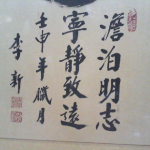 澹泊明志
寧靜致遠
壬申年臘月
李新